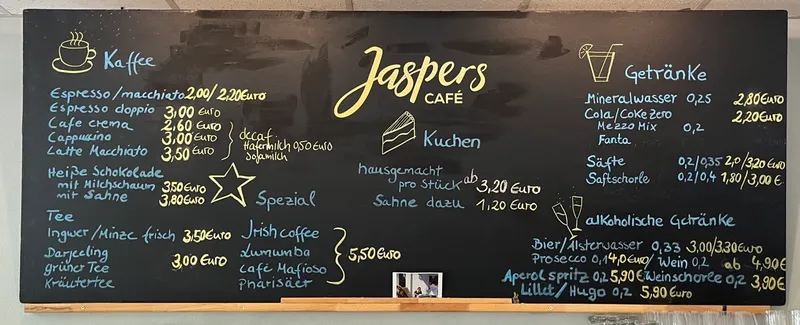 Kaffee
Espresso/macchiato 2,00/2,20Euro
Espresso doppio 3,00 Euro
Cafe crema 2,60 Euro
Cappuccino 3,00 Euro
Latte Macchiato 3,50 Euro
decaf
Hafermilch 0,50 Euro
Sojamilch
Heiße Schokolade
mit Milchschaum 3,50 Euro
mit Sahne 3,80 Euro
Tee
Ingwer/Minze frisch 3,50 Euro
Darjeeling
grüner Tee 3,00 Euro
Kräutertee
Spezial
Irish coffee
Lumumba
Café Mafioso
Pharisäer
5,50 Euro
Jaspers
CAFÉ
Kuchen
hausgemacht
pro Stück ab 3,20 Euro
Sahne dazu 1,20 Euro
Getränke
Mineralwasser 0,25 2,80 Euro
Cola/Coke Zero 2,20 Euro
Mezzo Mix 0,2
Fanta
Säfte 0,2/0,35 2,0/3,20 Euro
Saftschorle 0,2/0,4 1,80/3,00 €
alkoholische Getränke
Bier/Alsterwasser 0,33 3,00/3,30 Euro
Prosecco 0,1 4,0 Euro/Wein 0,2 ab 4,90 €
Aperol spritz 0,2 5,90 € Weinschorle 0,2 3,90 €
Lillet/Hugo 0,2 5,90 Euro